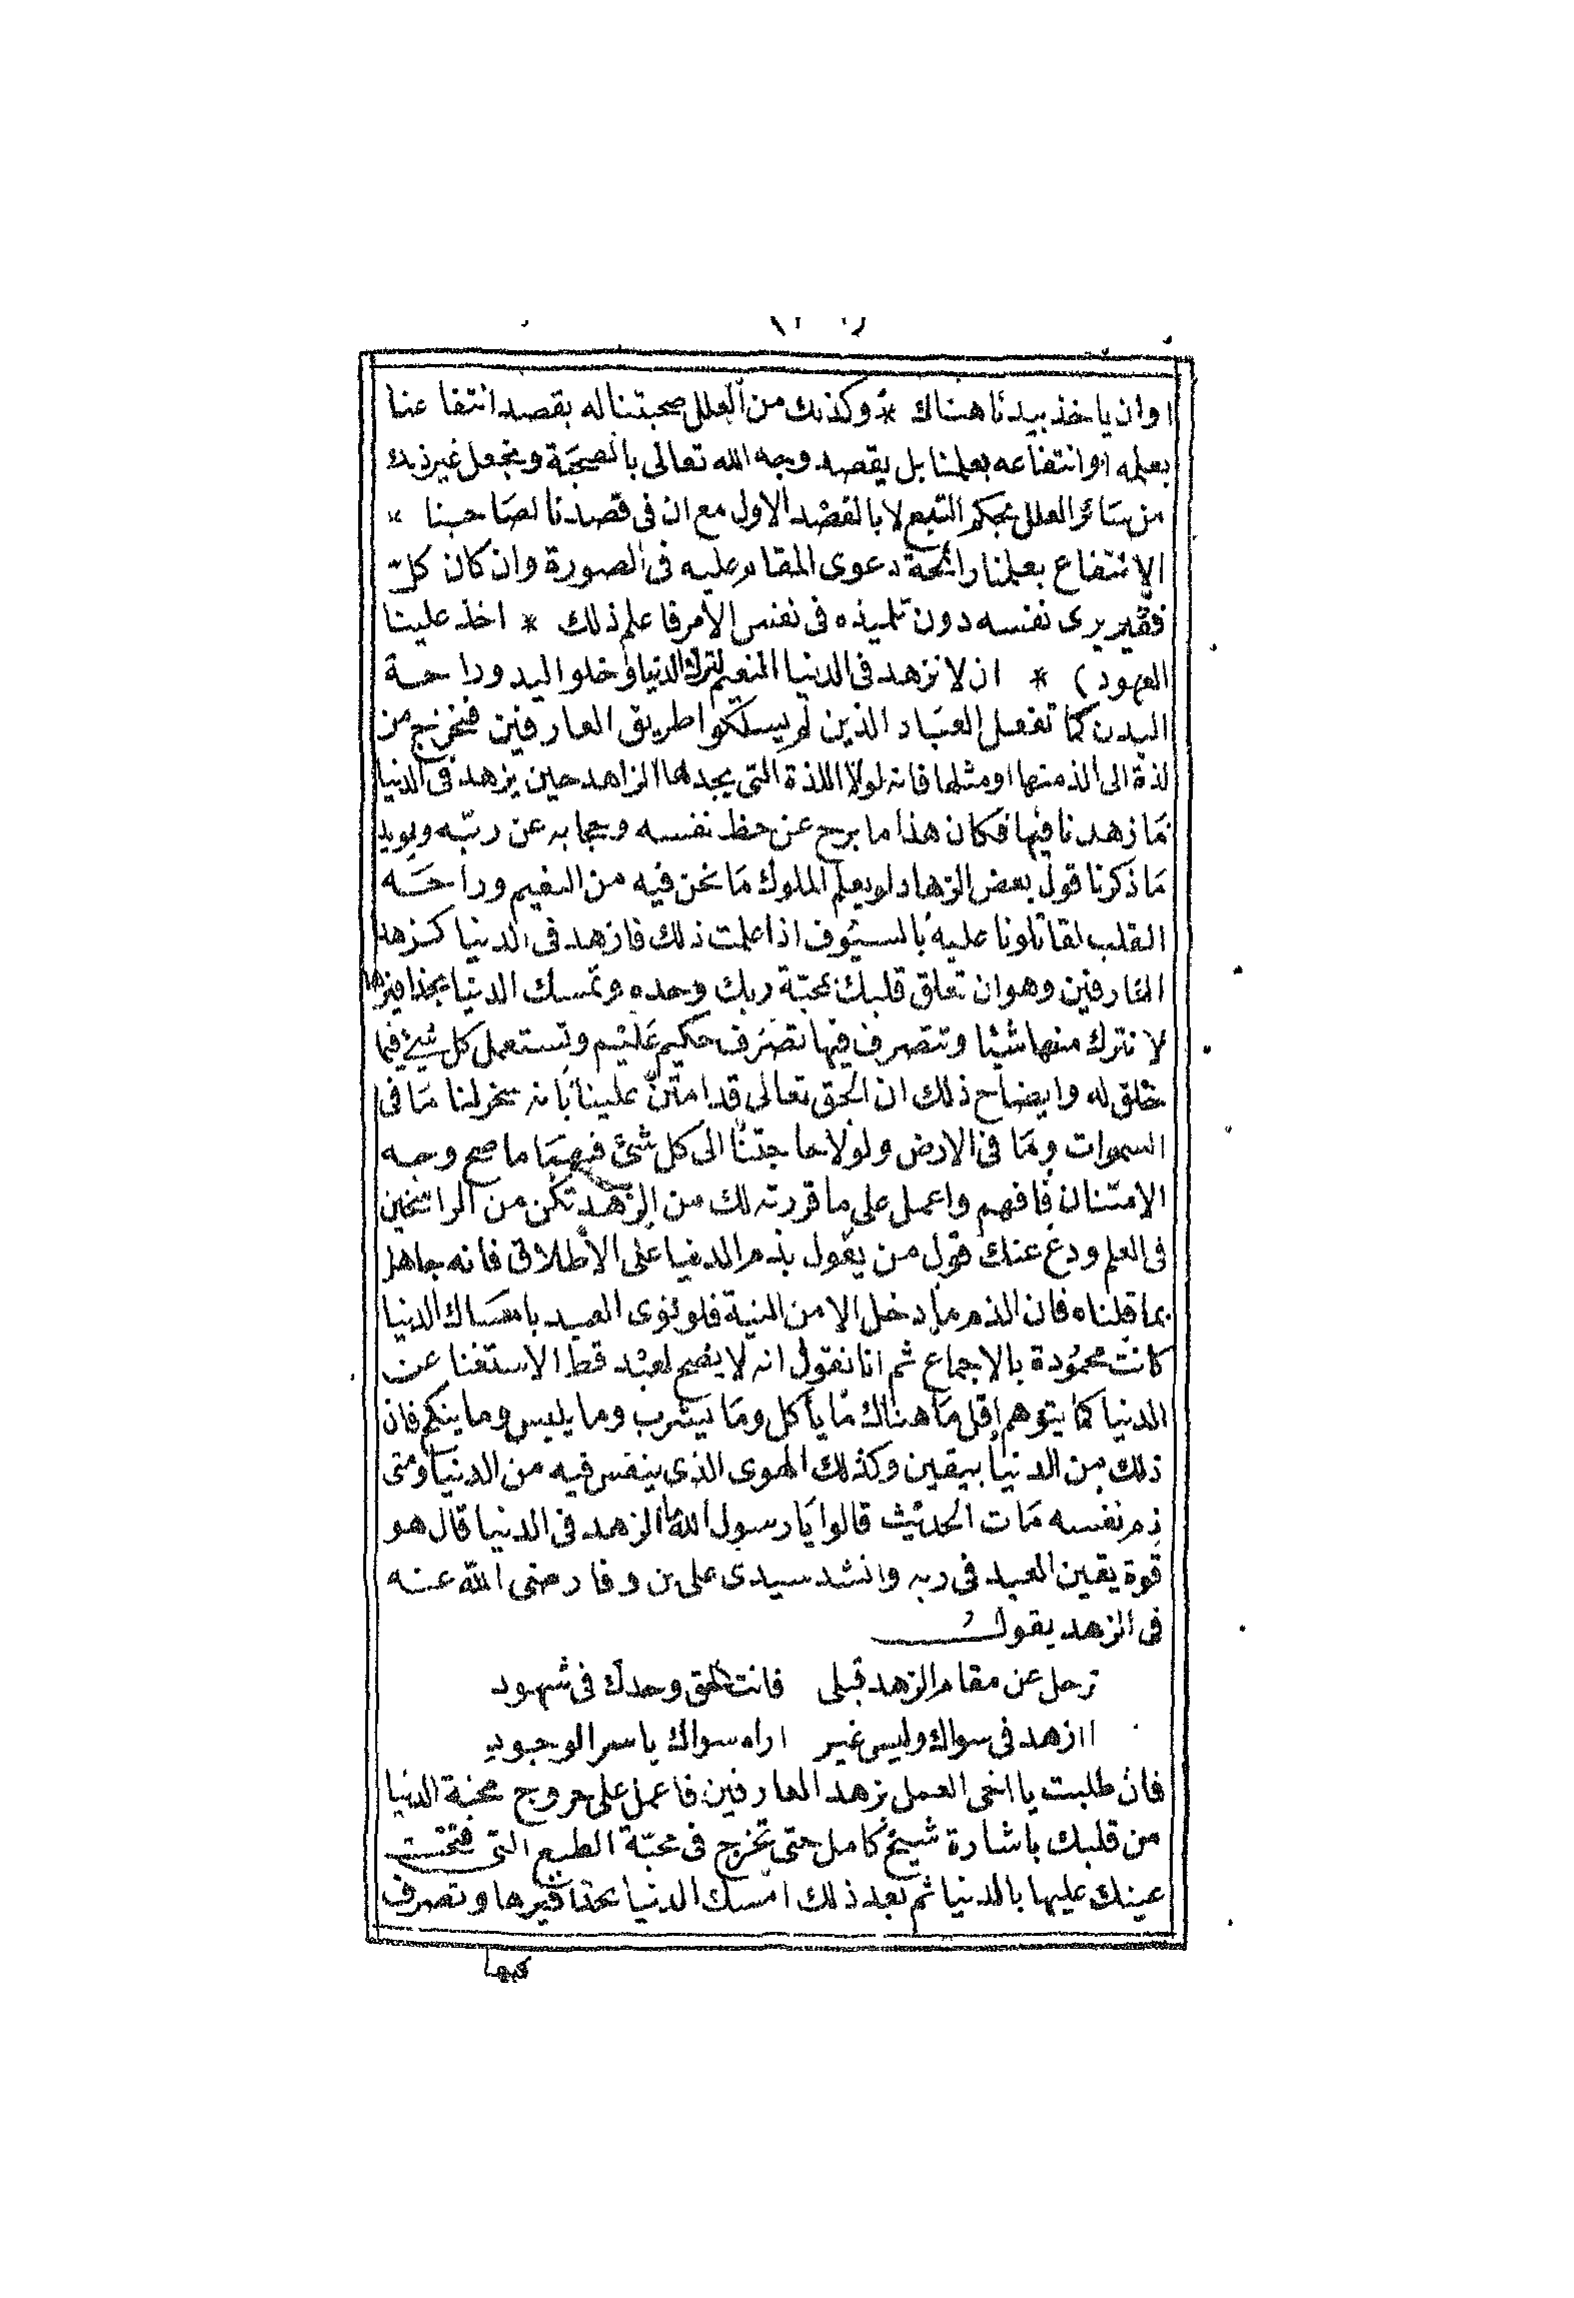 اوان ياخذ بيدنا هناك * وكذلك من العلل صحبتنا له بقصد انتفاعنا
بعلمه او انتفاعه بعلمنا بل يقصد وجه الله تعالى بالصحبة ونجعل غير ذلك
من سائر العلل بحكم التبع لا بالقصد الاول مع ان فى قصدنا لصاحبنا *
الانتفاع بعلمنا رائحة دعوى المقام عليه فى الصورة وان كان كل
فقير يرى نفسه دون تلميذه فى نفس الامر فاعلم ذلك * اخذ علينا
العهود) * ان لا نزهد فى الدنيا لنعيم لترك الدنيا وخلو اليد وراحة
البدن كما تفعل العباد الذين لم يسلكوا طريق العارفين فنخرج من
لذة الى الذ منها او مثلها فانه لولا اللذة التى يجدها الزاهد حين يزهد فى الدنيا
ما زهدنا فيها فكان هذا ما برح عن حظ نفسه وحجابه عن ربه ويويد
ما ذكرنا قول بعض الزهاد لو يعلم الملوك ما نحن فيه من النعيم وراحه
القلب لقاتلونا عليه بالسيوف اذا علمت ذلك فازهد فى الدنيا كزهد
العارفين وهو ان تعلق قلبك بمحبة ربك وحده وتمسك الدنيا بحذافيرها
لا تترك منها شيئا وتتصرف فيها تصرف حكيم عليم وتستعمل كل شئ فيما
خلق له وايضاح ذلك ان الحق تعالى قد امتن علينا بانه سخر لنا ما فى
السموات وما فى الارض ولولا حاجتنا الى كل شئ فيهما ما صح وجه
الامتنان فافهم واعمل على ما قررته لك من الزهد تكن من الراسخين
فى العلم ودع عنك قول من يقول بذم الدنيا على الاطلاق فانه جاهل
بما قلناه فان الذم ما دخل الا من النية فلو نوى العبد بامساك الدنيا
كانت محمودة بالاجماع ثم انا نقول انه لا يصح لعبد قط الاستغنا عن
الدنيا كما يتوهم اقل ما هناك ما ياكل وما يشرب وما يلبس وما ينكح فان
ذلك من الدنيا بيقين وكذلك الهوى الذى ينفس فيه من الدنيا ومتى
ذم نفسه مات الحديث قالوا يا رسول الله ما الزهد فى الدنيا قال هو
قوة يقين العبد فى ربه وانشد سيدى على بن وفا رضى الله عنه
فى الزهد يقول
ترحل عن مقام الزهد قبلى فانت الحق وحدك فى شهود
اازهد فى سواك وليس غير اراه سواك يا سر الوجود
فان طلبت يا اخى العمل بزهد العارفين فاعمل على خروج محبة الدنيا
من قلبك باشارة شيخ كامل حتى تخرج فى محبة الطبع التى فتحت
عينك عليها بالدنيا ثم بعد ذلك امسك الدنيا بحذافيرها وتصرف
فيها